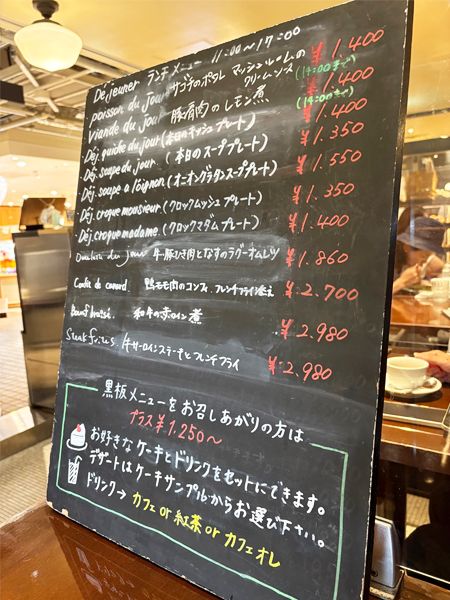 Déjeuner ランチメニュー 11:00〜17:00
poisson du jour サゴチのポワレ マッシュルームのクリームソース ¥1.400
(14:00まで)
viande du jour 豚肩肉のレモン煮 ¥1.400
(14:00まで)
Déj. quiche du jour (本日のキッシュプレート) ¥1.400
Déj. soupe du jour (本日のスーププレート) ¥1.350
Déj. soupe a l'oignon (オニオングラタンスーププレート) ¥1.550
Déj. croque monsieur (クロックムッシュプレート) ¥1.350
Déj. croque madame (クロックマダムプレート) ¥1.400
du jour 牛豚ひき肉となすのラグーオムレツ ¥1.860
Confit de canard 鴨モモ肉のコンフィ、フレンチフライ添え ¥2.700
Boeuf braisé. 和牛の赤ワイン煮 ¥2.980
Steak frites. 牛サーロインステーキとフレンチフライ ¥2.980
黒板メニューをお召しあがりの方は
プラス¥1.250〜
お好きなケーキとドリンクをセットにできます。
デザートはケーキサンプルからお選び下さい。
ドリンク→カフェ or 紅茶 or カフェオレ